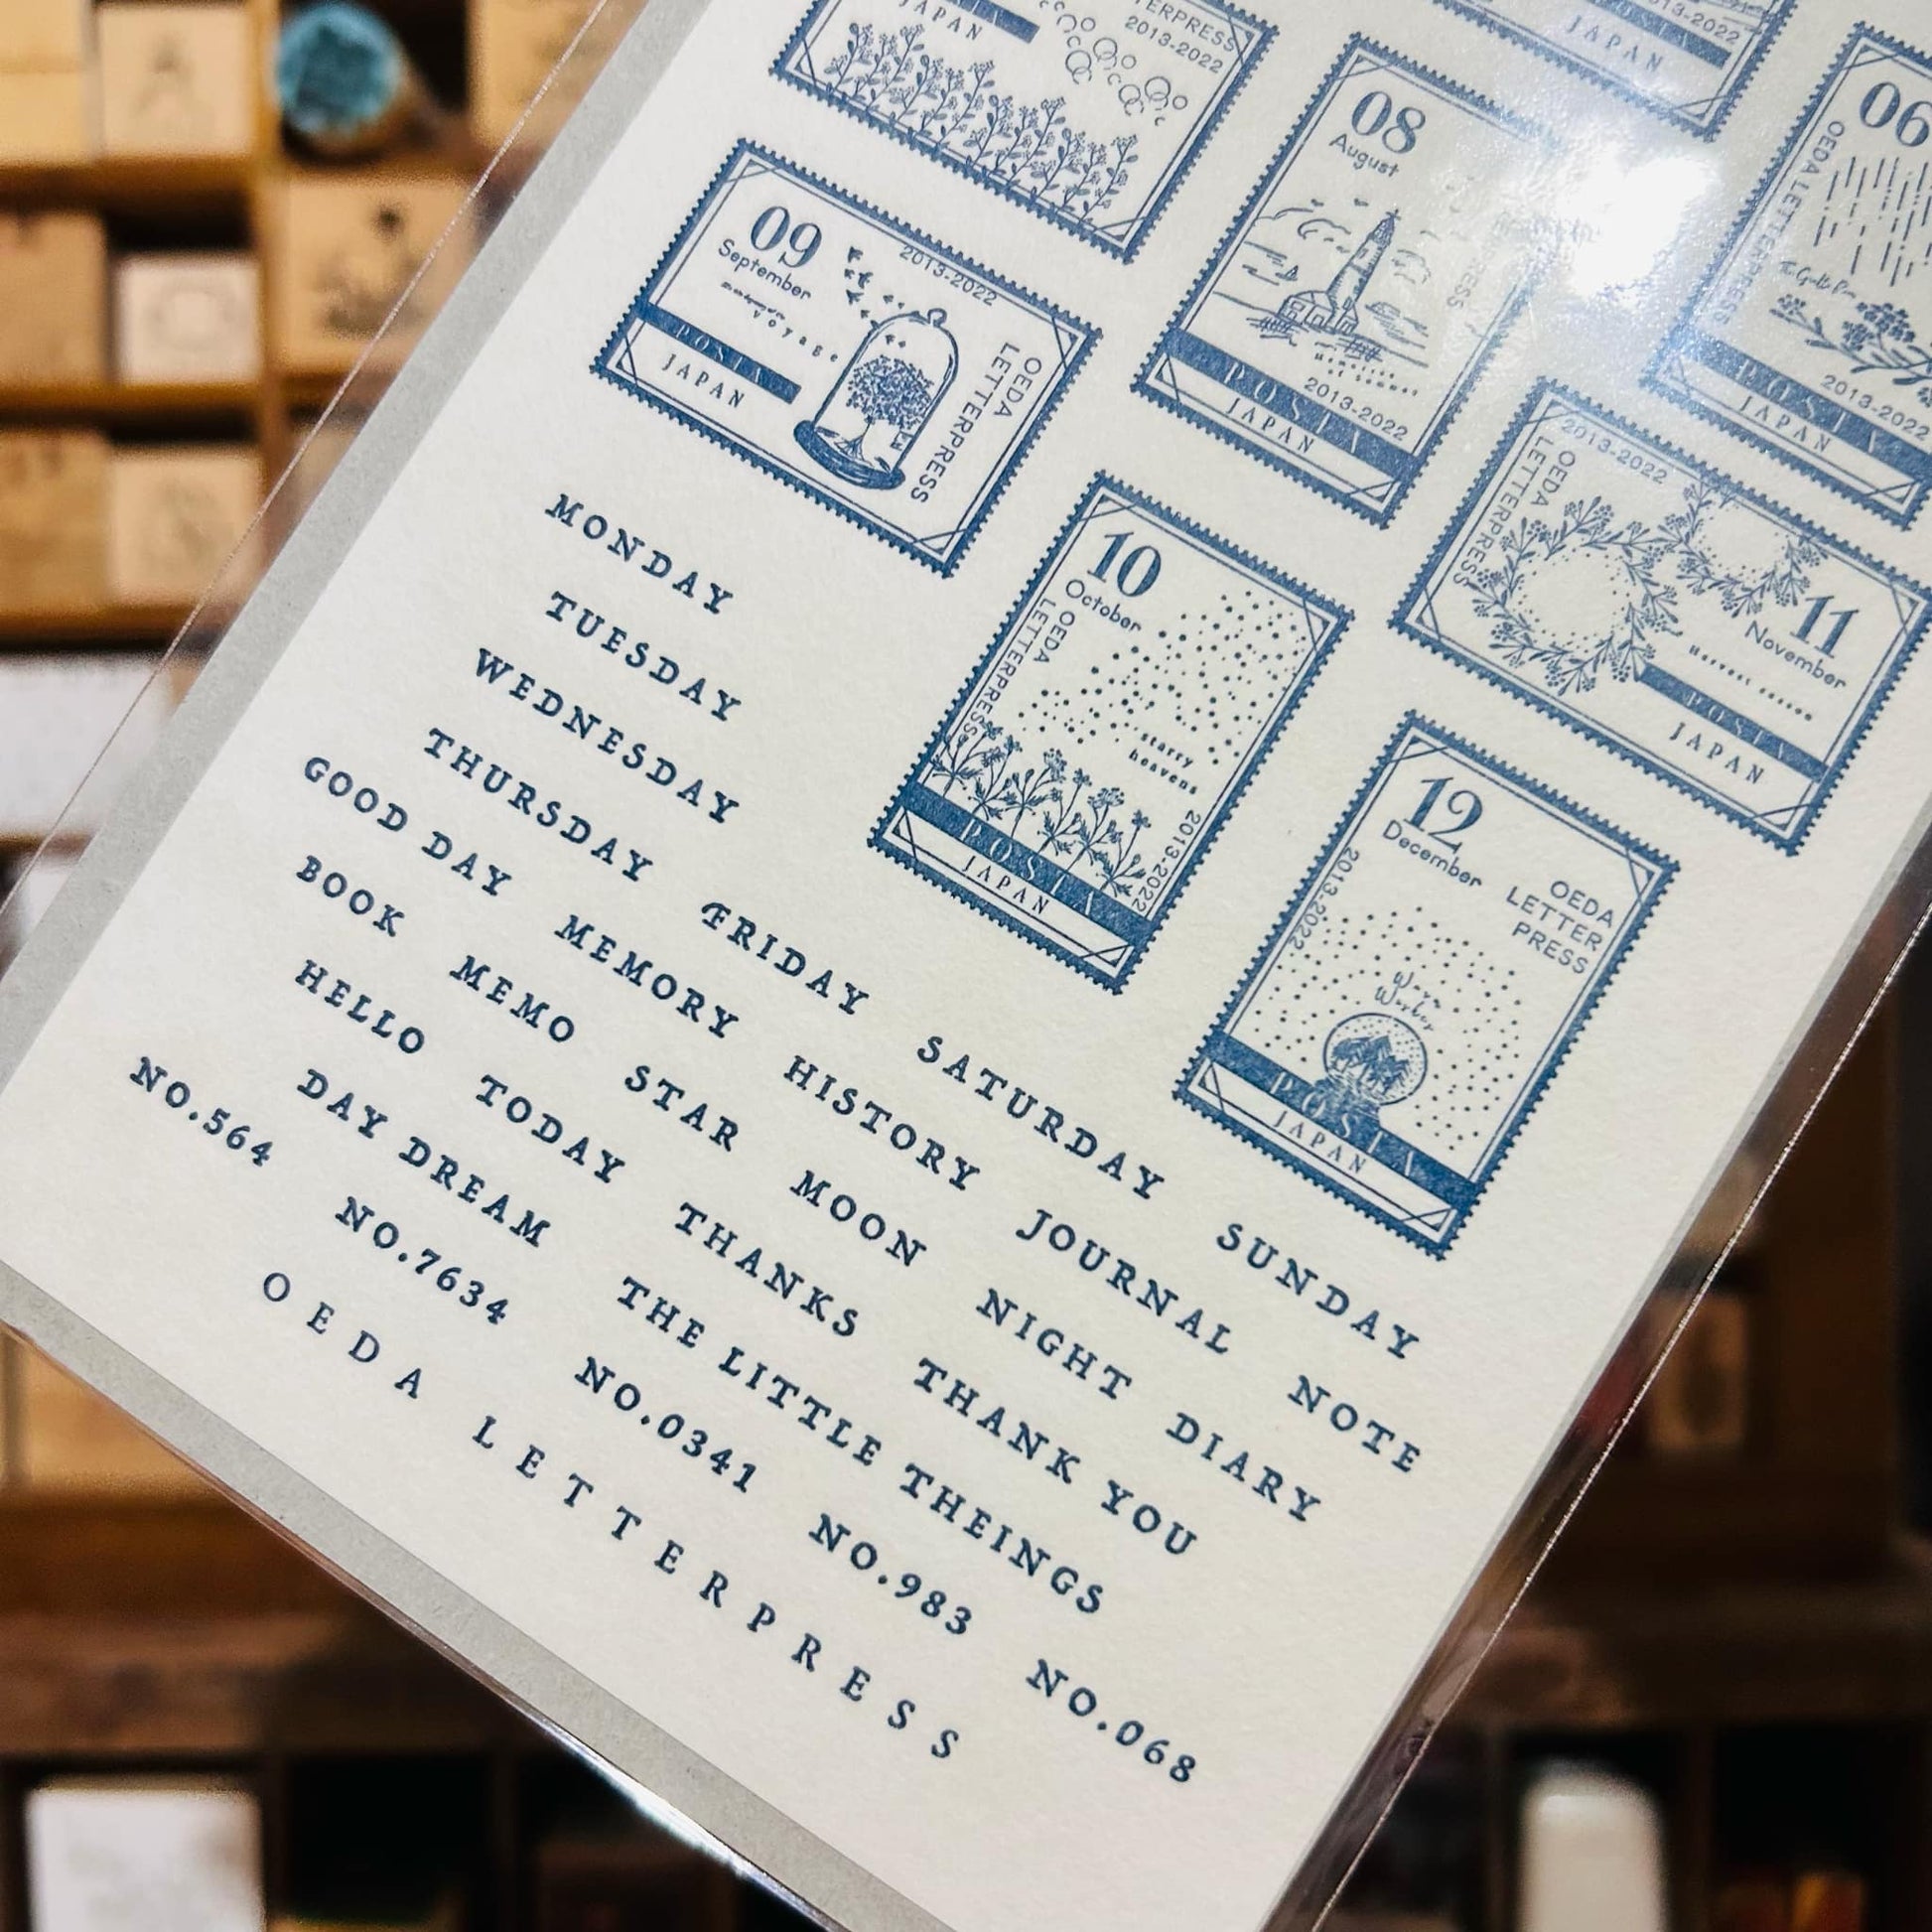 JAPAN
TERPRESS
2013-2022
JAPAN
2013-2022
08
August
POSTA
2013-2022
JAPAN
06
OEDA LETTERPRESS
POSTA
2013-2022
JAPAN
09
September
2013-2022
voyage
POSTA
JAPAN
OEDA
LETTERPRESS
10
October
OEDA
LETTERPRESS
starry
heavens
2013-2022
POSTA
JAPAN
2013-2022
OEDA
LETTERPRESS
11
November
Harvest season
POSTA
JAPAN
12
December
2013-2022
OEDA
LETTER
PRESS
POSTA
JAPAN
MONDAY
TUESDAY
WEDNESDAY
THURSDAY FRIDAY SATURDAY SUNDAY
GOOD DAY MEMORY HISTORY JOURNAL NOTE
BOOK MEMO STAR MOON NIGHT DIARY
HELLO TODAY THANKS THANK YOU
DAY DREAM THE LITTLE THEINGS
NO.564 NO.7634 NO.0341 NO.983 NO.068
OEDA LETTERPRESS